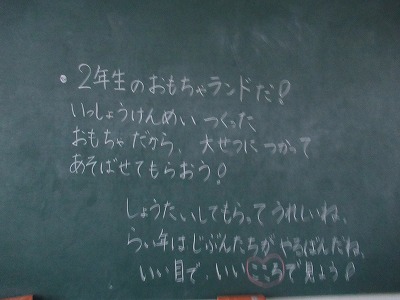 ・2年生のおもちゃランドだ！
いっしょうけんめい つくった
おもちゃだから、大せつに つかって
あそばせてもらおう！
しょうたいしてもらって うれしいね、
らい年は じぶんたちが やるばんだね、
いい目で、いい こころで 見よう！